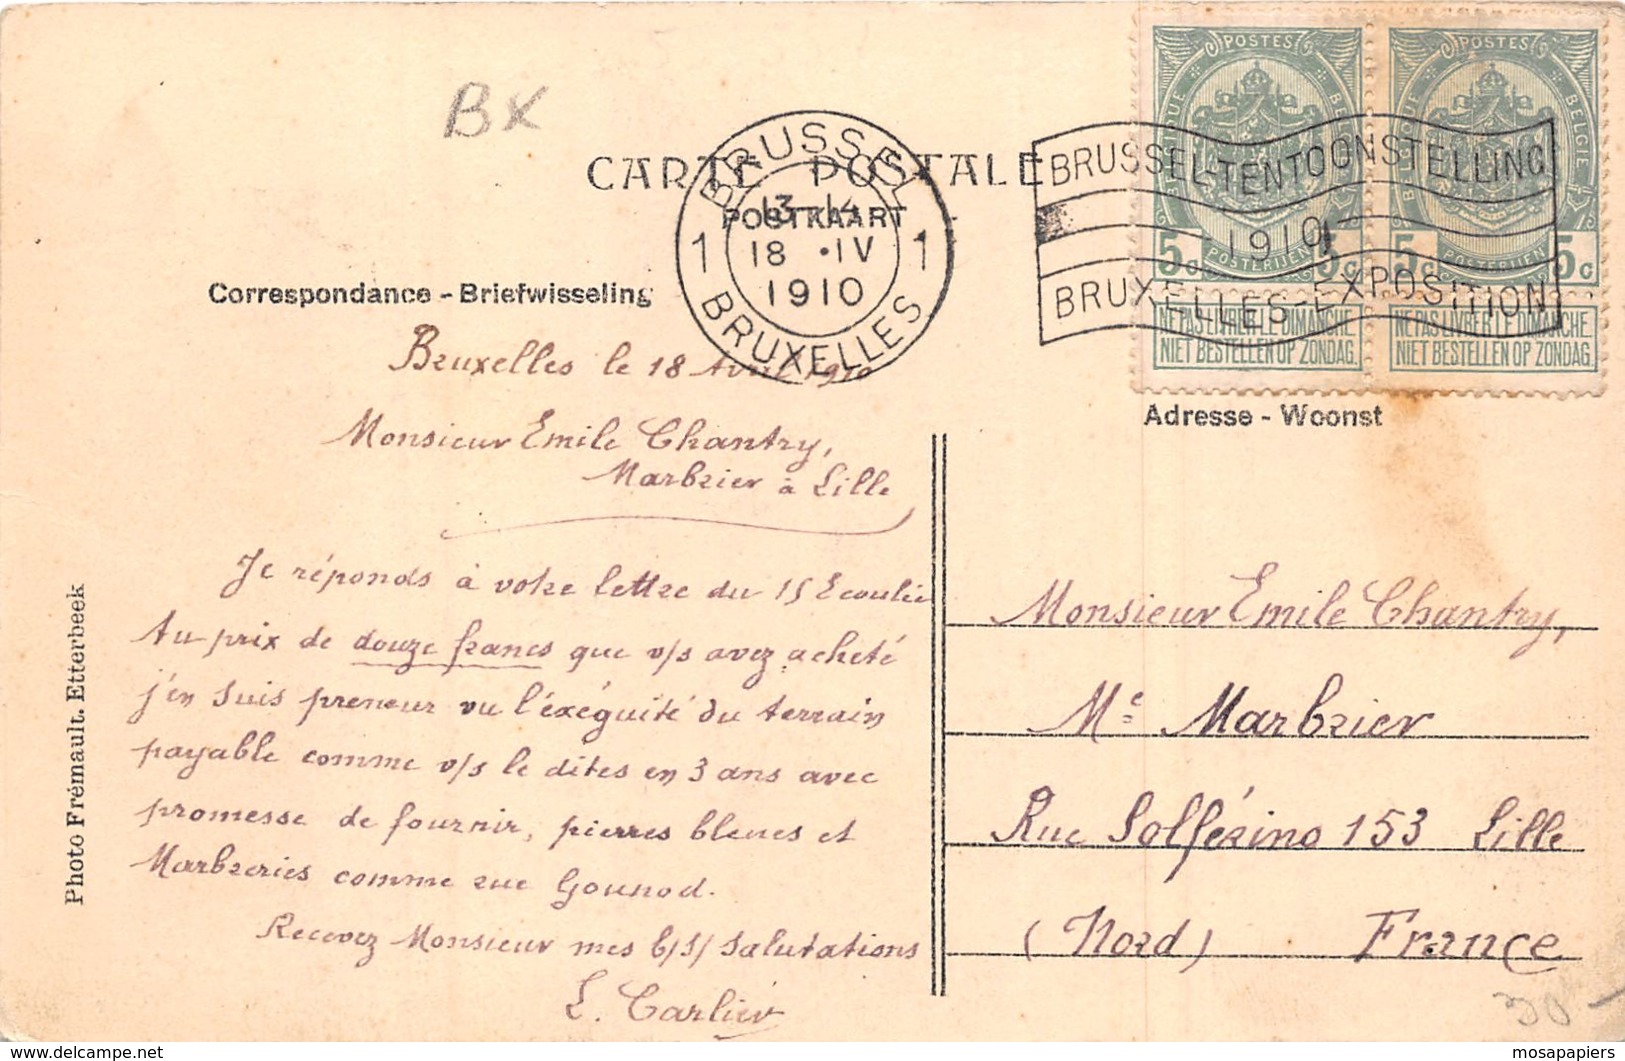 BX
CARTE POSTALE
POSTKAART
BRUSSEL
13-14
1 18 · IV 1
1910
BRUXELLES
BRUSSEL-TENTOONSTELLING
1910
BRUXELLES-EXPOSITION
POSTES
BELGIQUE BELGIE
POSTERIJEN
5c 5c
NE PAS LIVRER LE DIMANCHE
NIET BESTELLEN OP ZONDAG.
POSTES
BELGIQUE BELGIE
POSTERIJEN
5c 5c
NE PAS LIVRER LE DIMANCHE
NIET BESTELLEN OP ZONDAG.
Correspondance - Briefwisseling
Adresse - Woonst
Bruxelles le 18 Avril 1910
Monsieur Emile Chantry,
Marbrier à Lille
Je réponds à votre lettre du 15 Ecoulée
Au prix de douze francs que v/s avez acheté
j'en suis preneur vu l'éxéguité du terrain
payable comme v/s le dites en 3 ans avec
promesse de fournir, pierres bleues et
Marbreries comme rue Gounod.
Recevez Monsieur mes b/s/ Salutations
L. Carlier
Monsieur Emile Chantry,
Me Marbrier
Rue Solférino 153 Lille
(Nord) France
30-
Photo Frémault. Etterbeek
mosapapiers